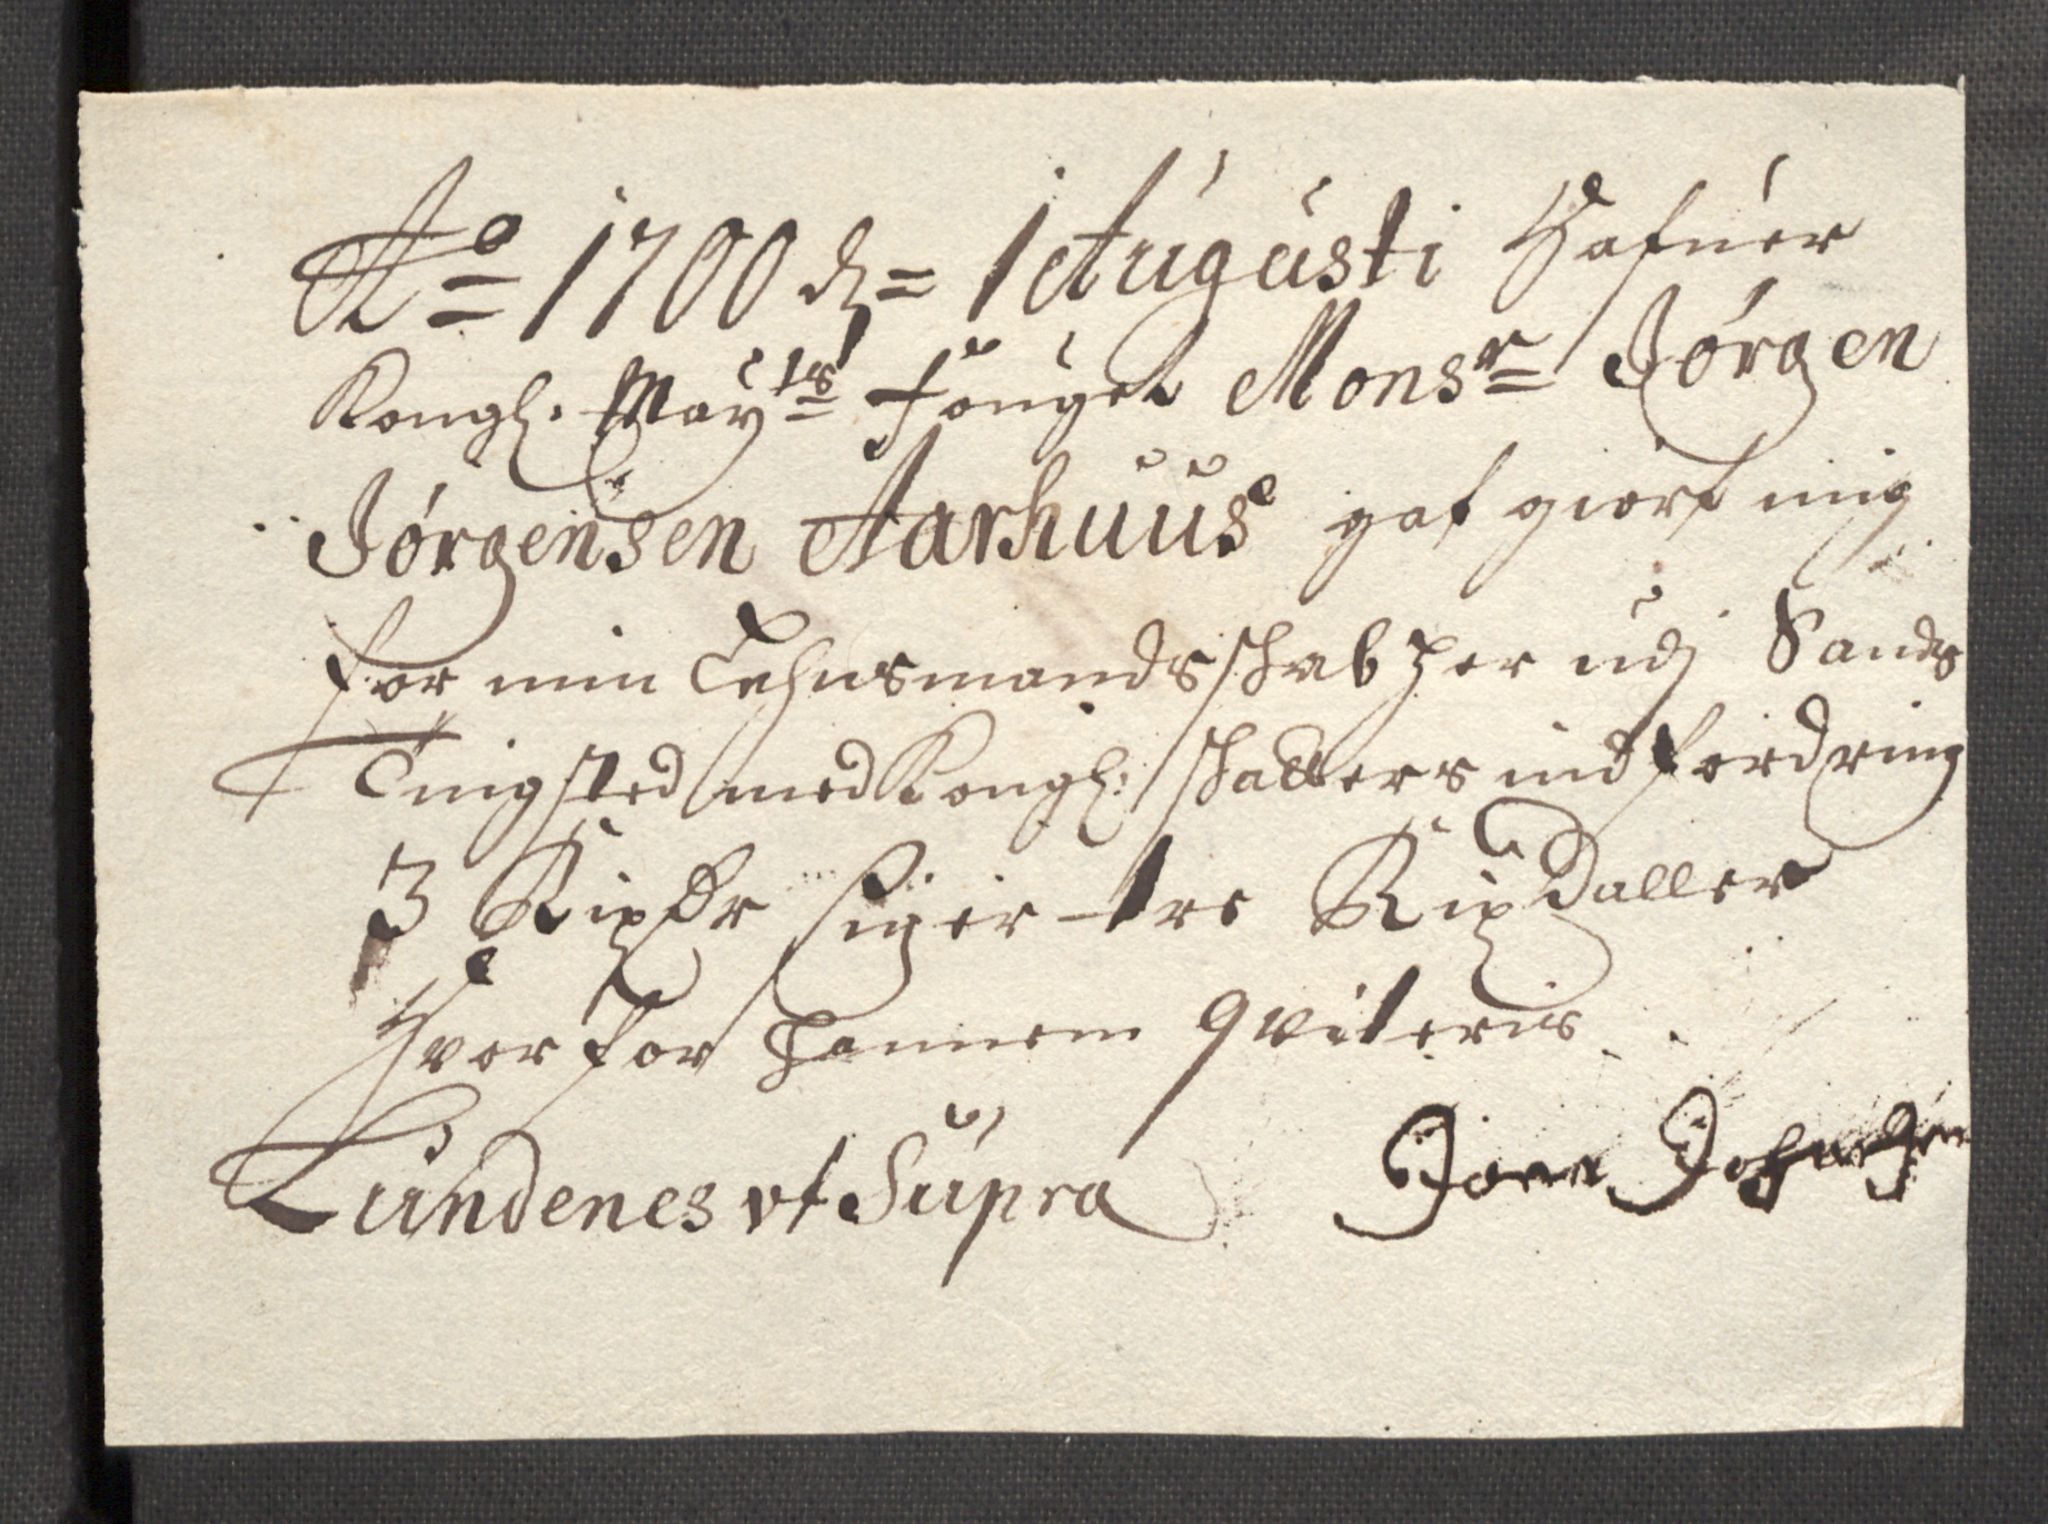 Ao 1700 d: 1 Augusti Hafuer
Kongl. Mayts fouget Monsr Jørgen
Jørgensen Aarhuus gaf giort mig
for min Lehnsmandsschab her udj Sands
Tingsted med Kongl: schatters indfordring
3 Rixdr siger tre Rixdaller
Hvorfor hannem qviteris
Lundenes vt Supra Joen